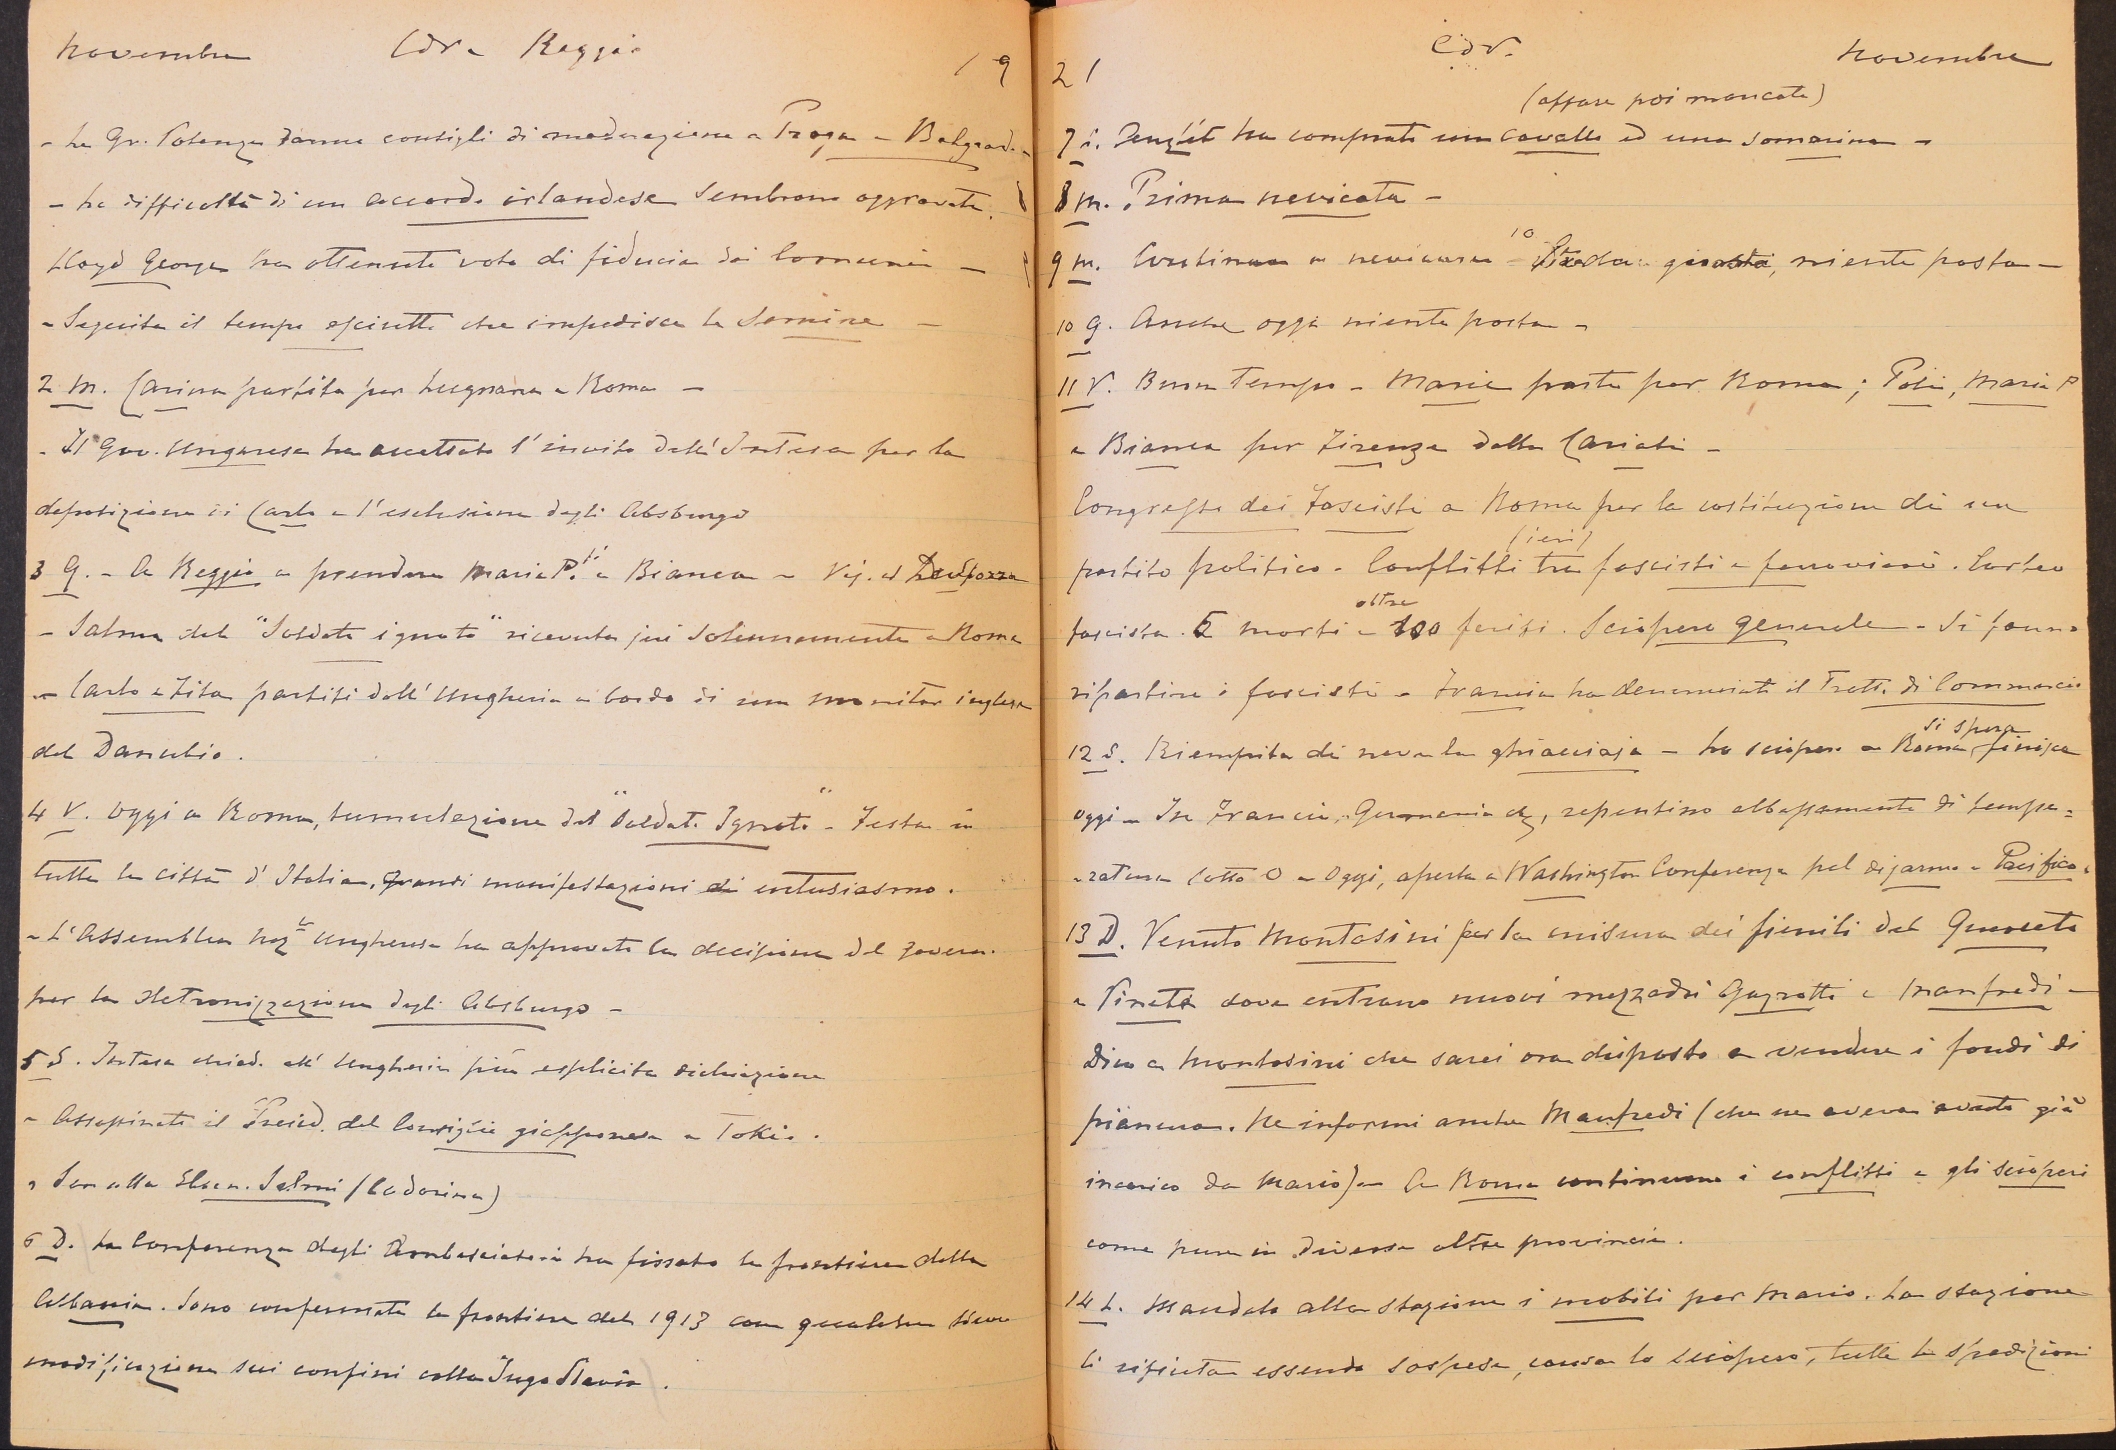 Novembre Cdv. Reggio 19
- Le Gr. Potenze danno consigli di moderazione a Praga e Belgrado -
- Le difficoltà di un accordo irlandese sembrano aggravate.
Lloyd George ha ottenuto voto di fiducia dai Comuni -
- Seguita il tempo asciutto che impedisce le semine -
2 m. Carina partita per Lugnano e Roma -
- Il Gov. Ungherese ha accettato l'invito dell'Intesa per la
deposizione di Carlo e l'esclusione degli Absburgo
3 G. - A Reggio a prendere Maria P. e Bianca -
- Salma del "Soldato ignoto" ricevuta jeri solennemente a Roma
- Carlo e Zita partiti dall'Ungheria a bordo di un monitor inglese
del Danubio.
4 V. Oggi a Roma, tumulazione del "Soldato Ignoto" - Festa in
tutte le città d'Italia, grandi manifestazioni di entusiasmo.
- L'Assemblea naz.le Ungherese ha approvato la decisione del govern.
per la detronizzazione degli Absburgo -
5 S. Intesa chied. all'Ungheria più esplicita dichiazione
- Assassinato il Presid. del Consiglio giapponese a Tokio.
- Salmi (Cadorina)
6 D. La Conferenza degli Ambasciatori ha fissato le frontiere della
Albania. Sono confermate le frontiere del 1913 con qualche lieve
modificazione sui confini colla Jugoslavia.
21 Cdv. Novembre
(affare poi mancato)
7 L. ha comprato un cavallo ed una somarina -
8 m. Prima nevicata -
9 m. Continua a nevicare - 10 Strada guasta, niente posta -
10 G. Anche oggi niente posta -
11 V. Buon tempo - Maria parte per Roma; Maria P
e Bianca per Firenze dalla Cariati -
Congresso dei Fascisti a Roma per la costituzione di un
partito politico - Conflitti (ieri) tra fascisti e ferrovieri. Corteo
fascista. 5 morti e oltre 100 feriti. Sciopero generale - Si fanno
ripartire i fascisti - Francia ha denunciato il Tratt. di Commercio
12 S. Riempita di neve la ghiacciaja - Lo sciopero a Roma si spera finisca
oggi - In Francia, Germania etc, repentino abbassamento di tempe=
=ratura sotto 0 - Oggi, aperta a Washington Conferenza pel disarmo e Pacifico.
13 D. Venuto Montasini per la misura dei fienili del Querceto
e Pineta dove entrano nuovi mezzadri Gazzotti e Manfredi -
Dico a Montasini che sarei ora disposto a vendere i fondi di
pianura. Ne informi anche Manfredi (che ne aveva avuto già
incarico da Mario) - A Roma continuano i conflitti e gli scioperi
come pure in diverse altre provincie.
14 L. Mandato alla stazione i mobili per Mario. La stazione
li rifiuta essendo sospese, causa lo sciopero, tutte le spedizioni